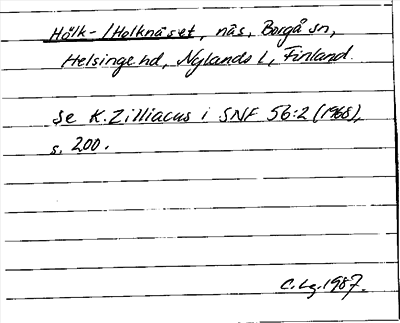 Hölk- / Holknäset, näs, Borgå sn,
Helsinge hd, Nylands l, Finland.
Se K. Zilliacus i SNF 56:2 (1968),
s. 200.
C. Lg. 1987.